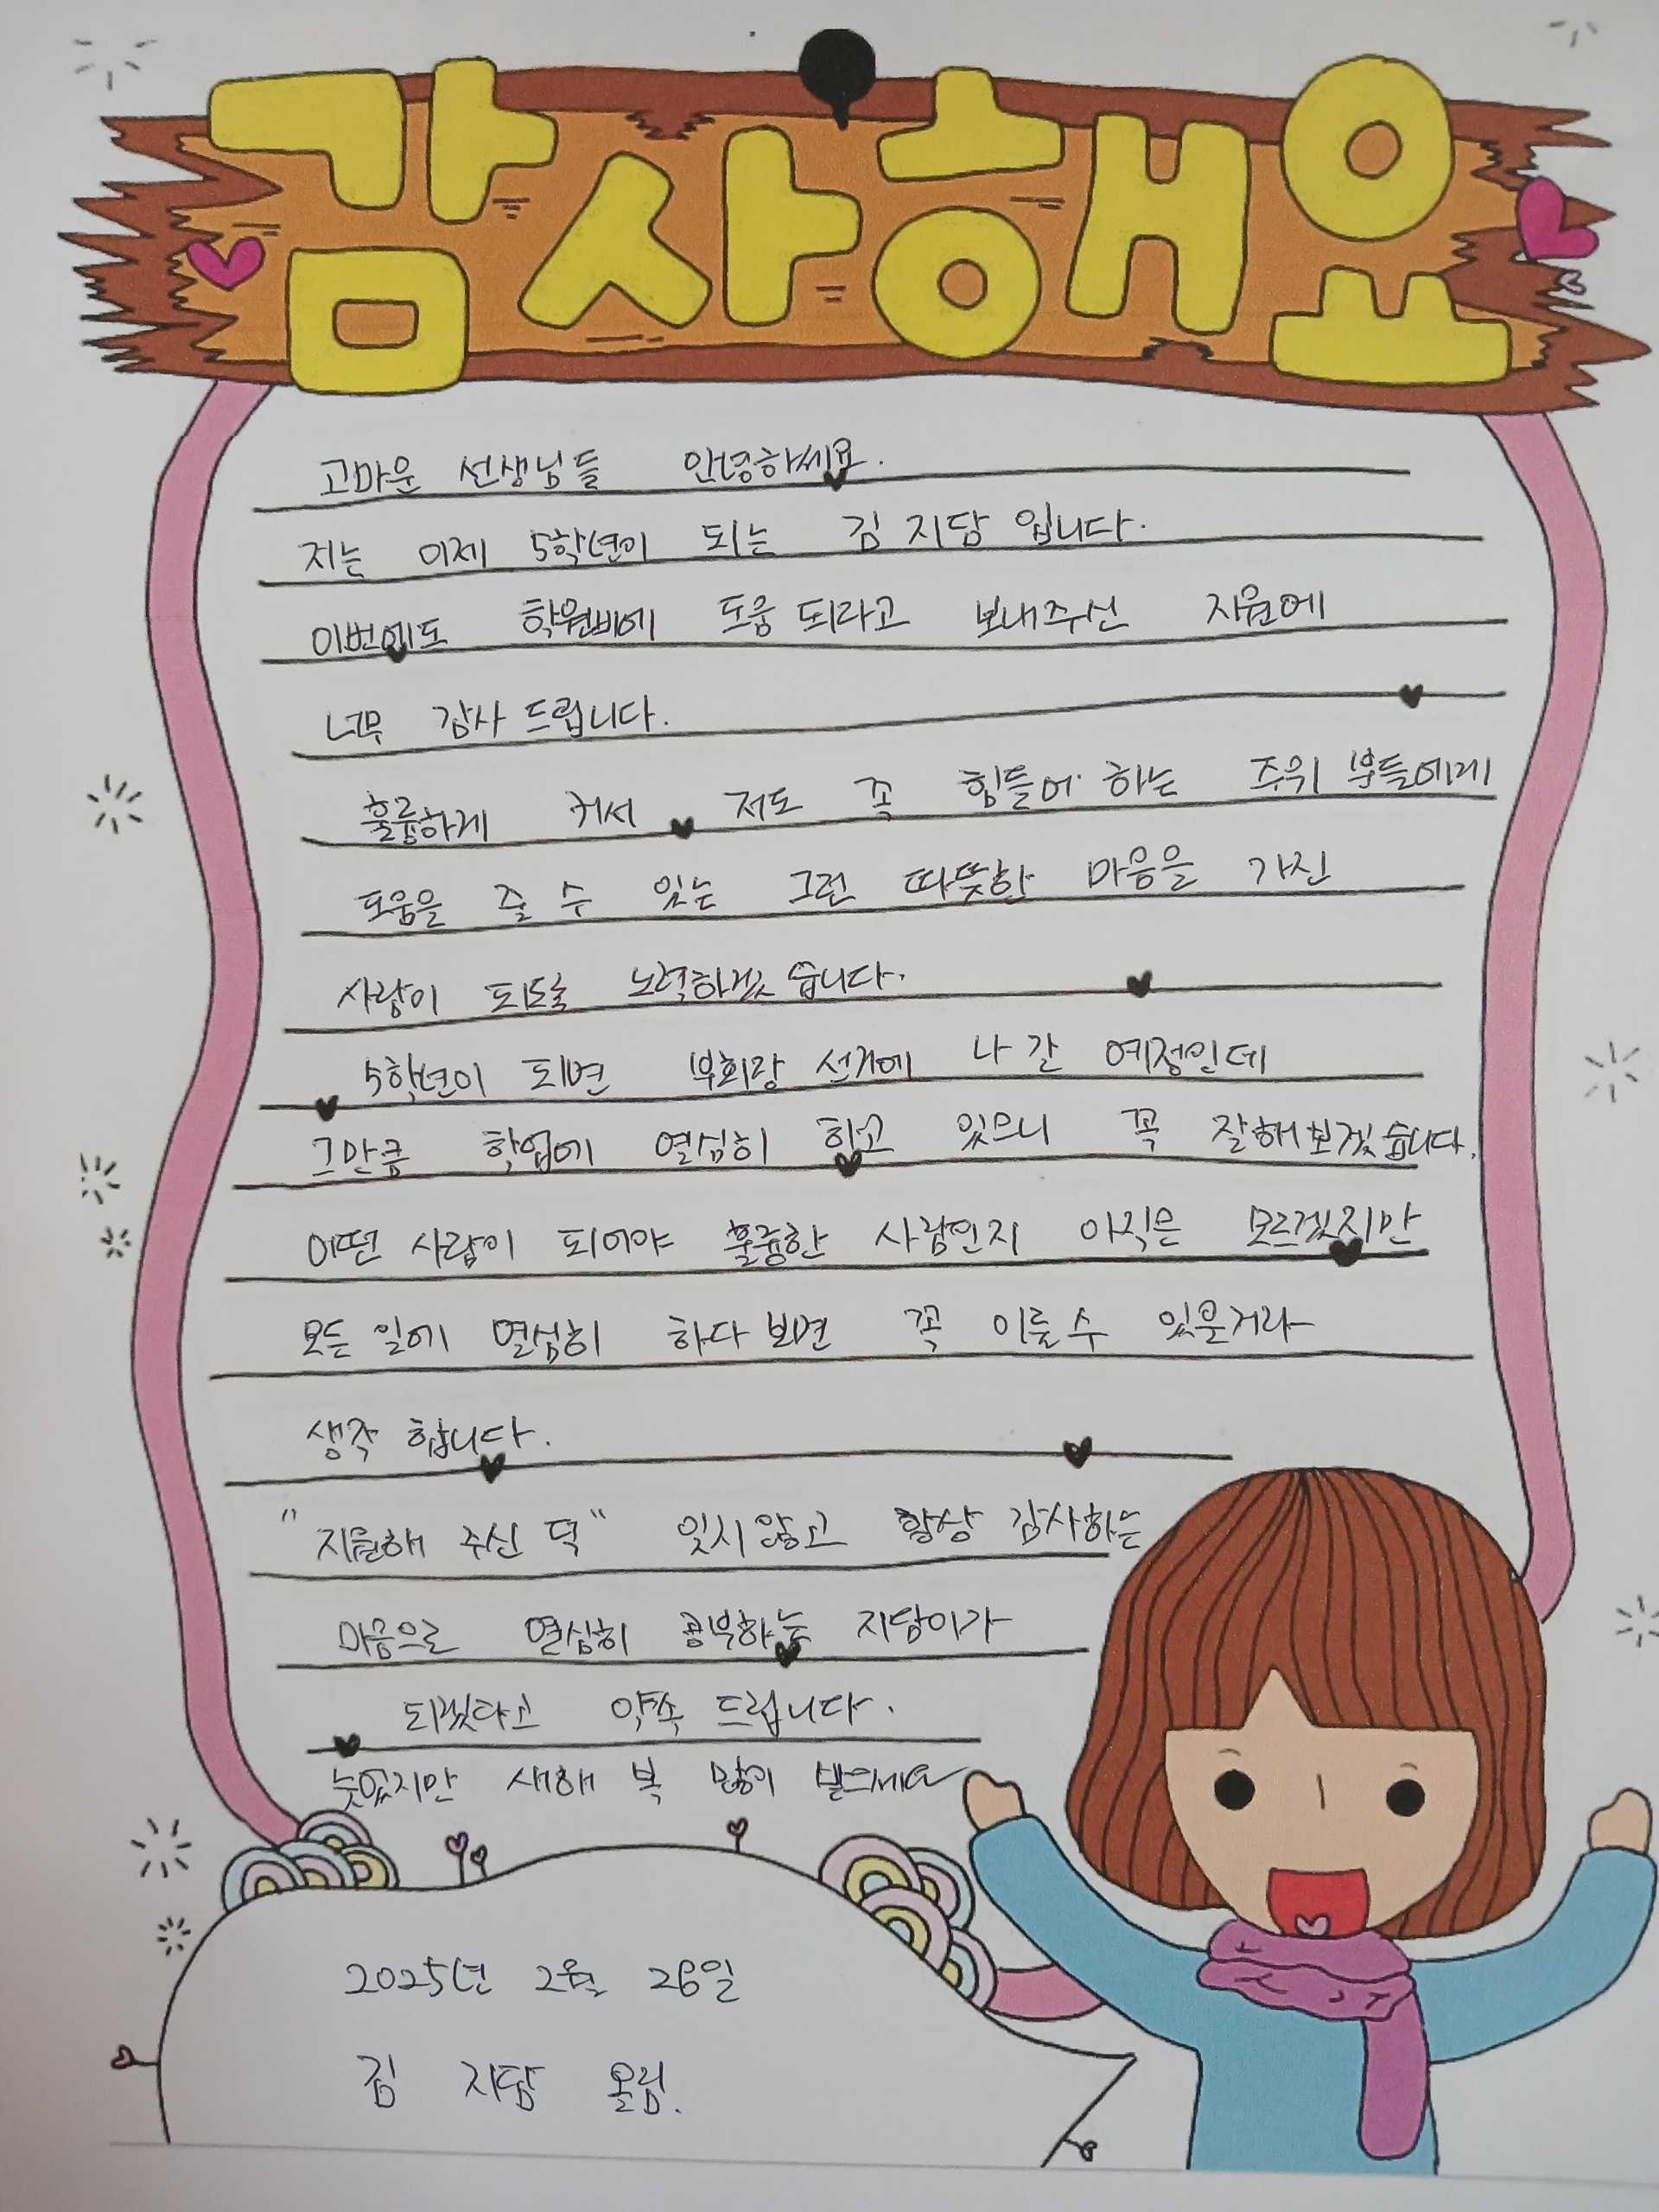 감사해요
고마운 선생님들 안녕하세요.
저는 이제 5학년이 되는 김 지담 입니다.
이번에도 학원비에 도움 되라고 보내주신 지원에
너무 감사 드립니다.
훌륭하게 커서 저도 꼭 힘들어 하는 주위 분들에게
도움을 줄 수 있는 그런 따뜻한 마음을 가진
사람이 되도록 노력하겠 습니다.
5학년이 되면 부회장 선거에 나 갈 예정인데
그만큼 학업에 열심히 하고 있으니 꼭 잘해보겠습니다.
어떤 사람이 되어야 훌륭한 사람인지 아직은 모르겠지만
모든 일에 열심히 하다 보면 꼭 이룰수 있을거라
생각 합니다.
"지원해 주신 덕" 잊지않고 항상 감사하는
마음으로 열심히 공부하는 지담이가
되겠다고 약속 드립니다.
늦었지만 새해 복 많이 받으세요
2025년 2월 26일
김 지담 올림.